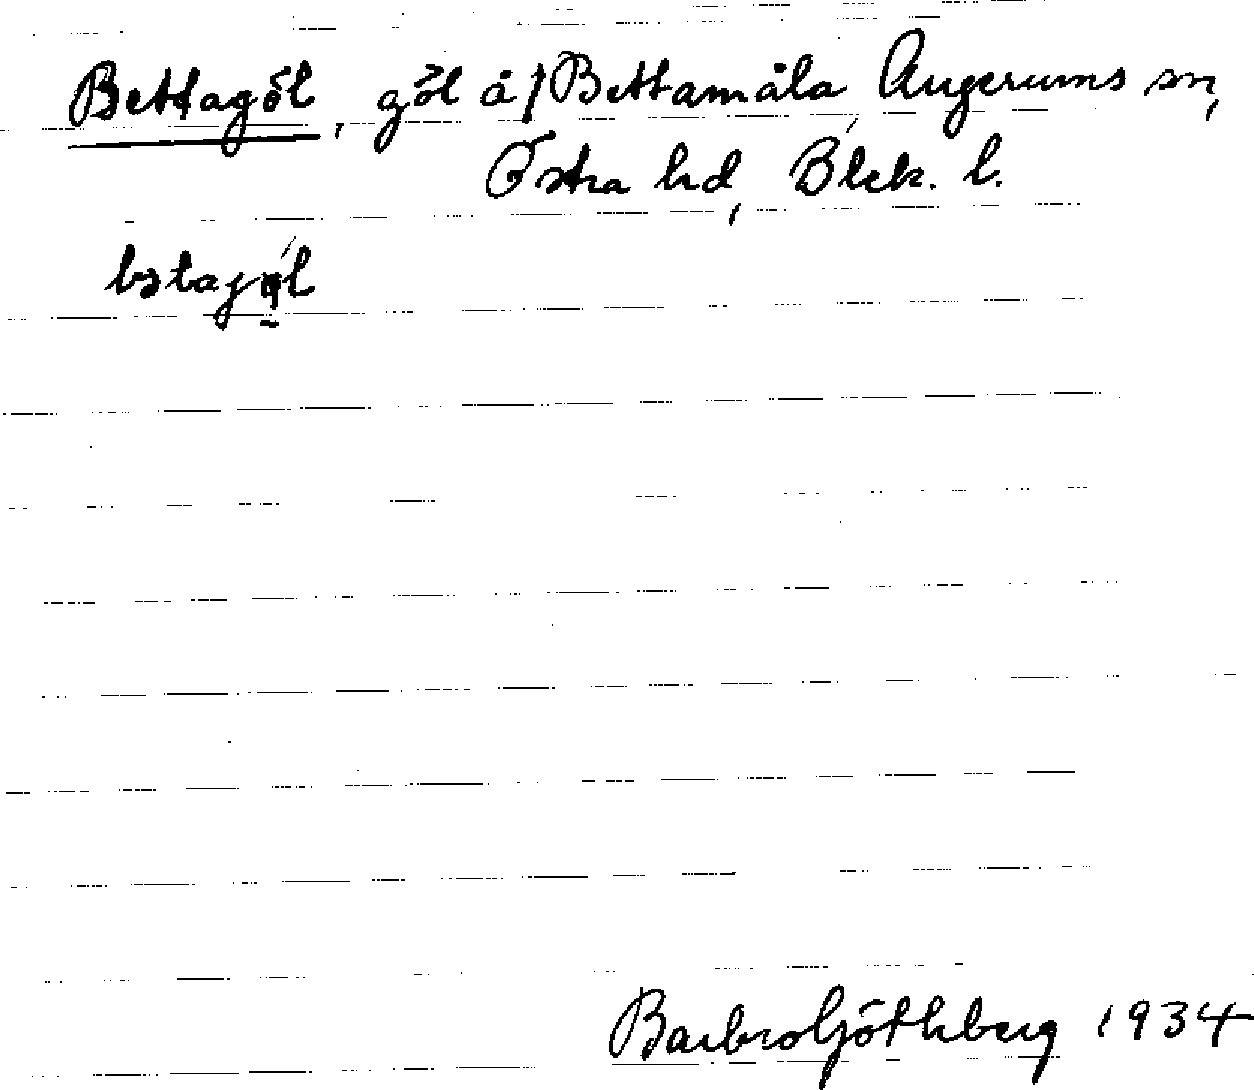 Bettagöl, göl å/Bettamåla, Augerums sn,
Östra hd, Blek. l.
Barbro Göthberg 1934